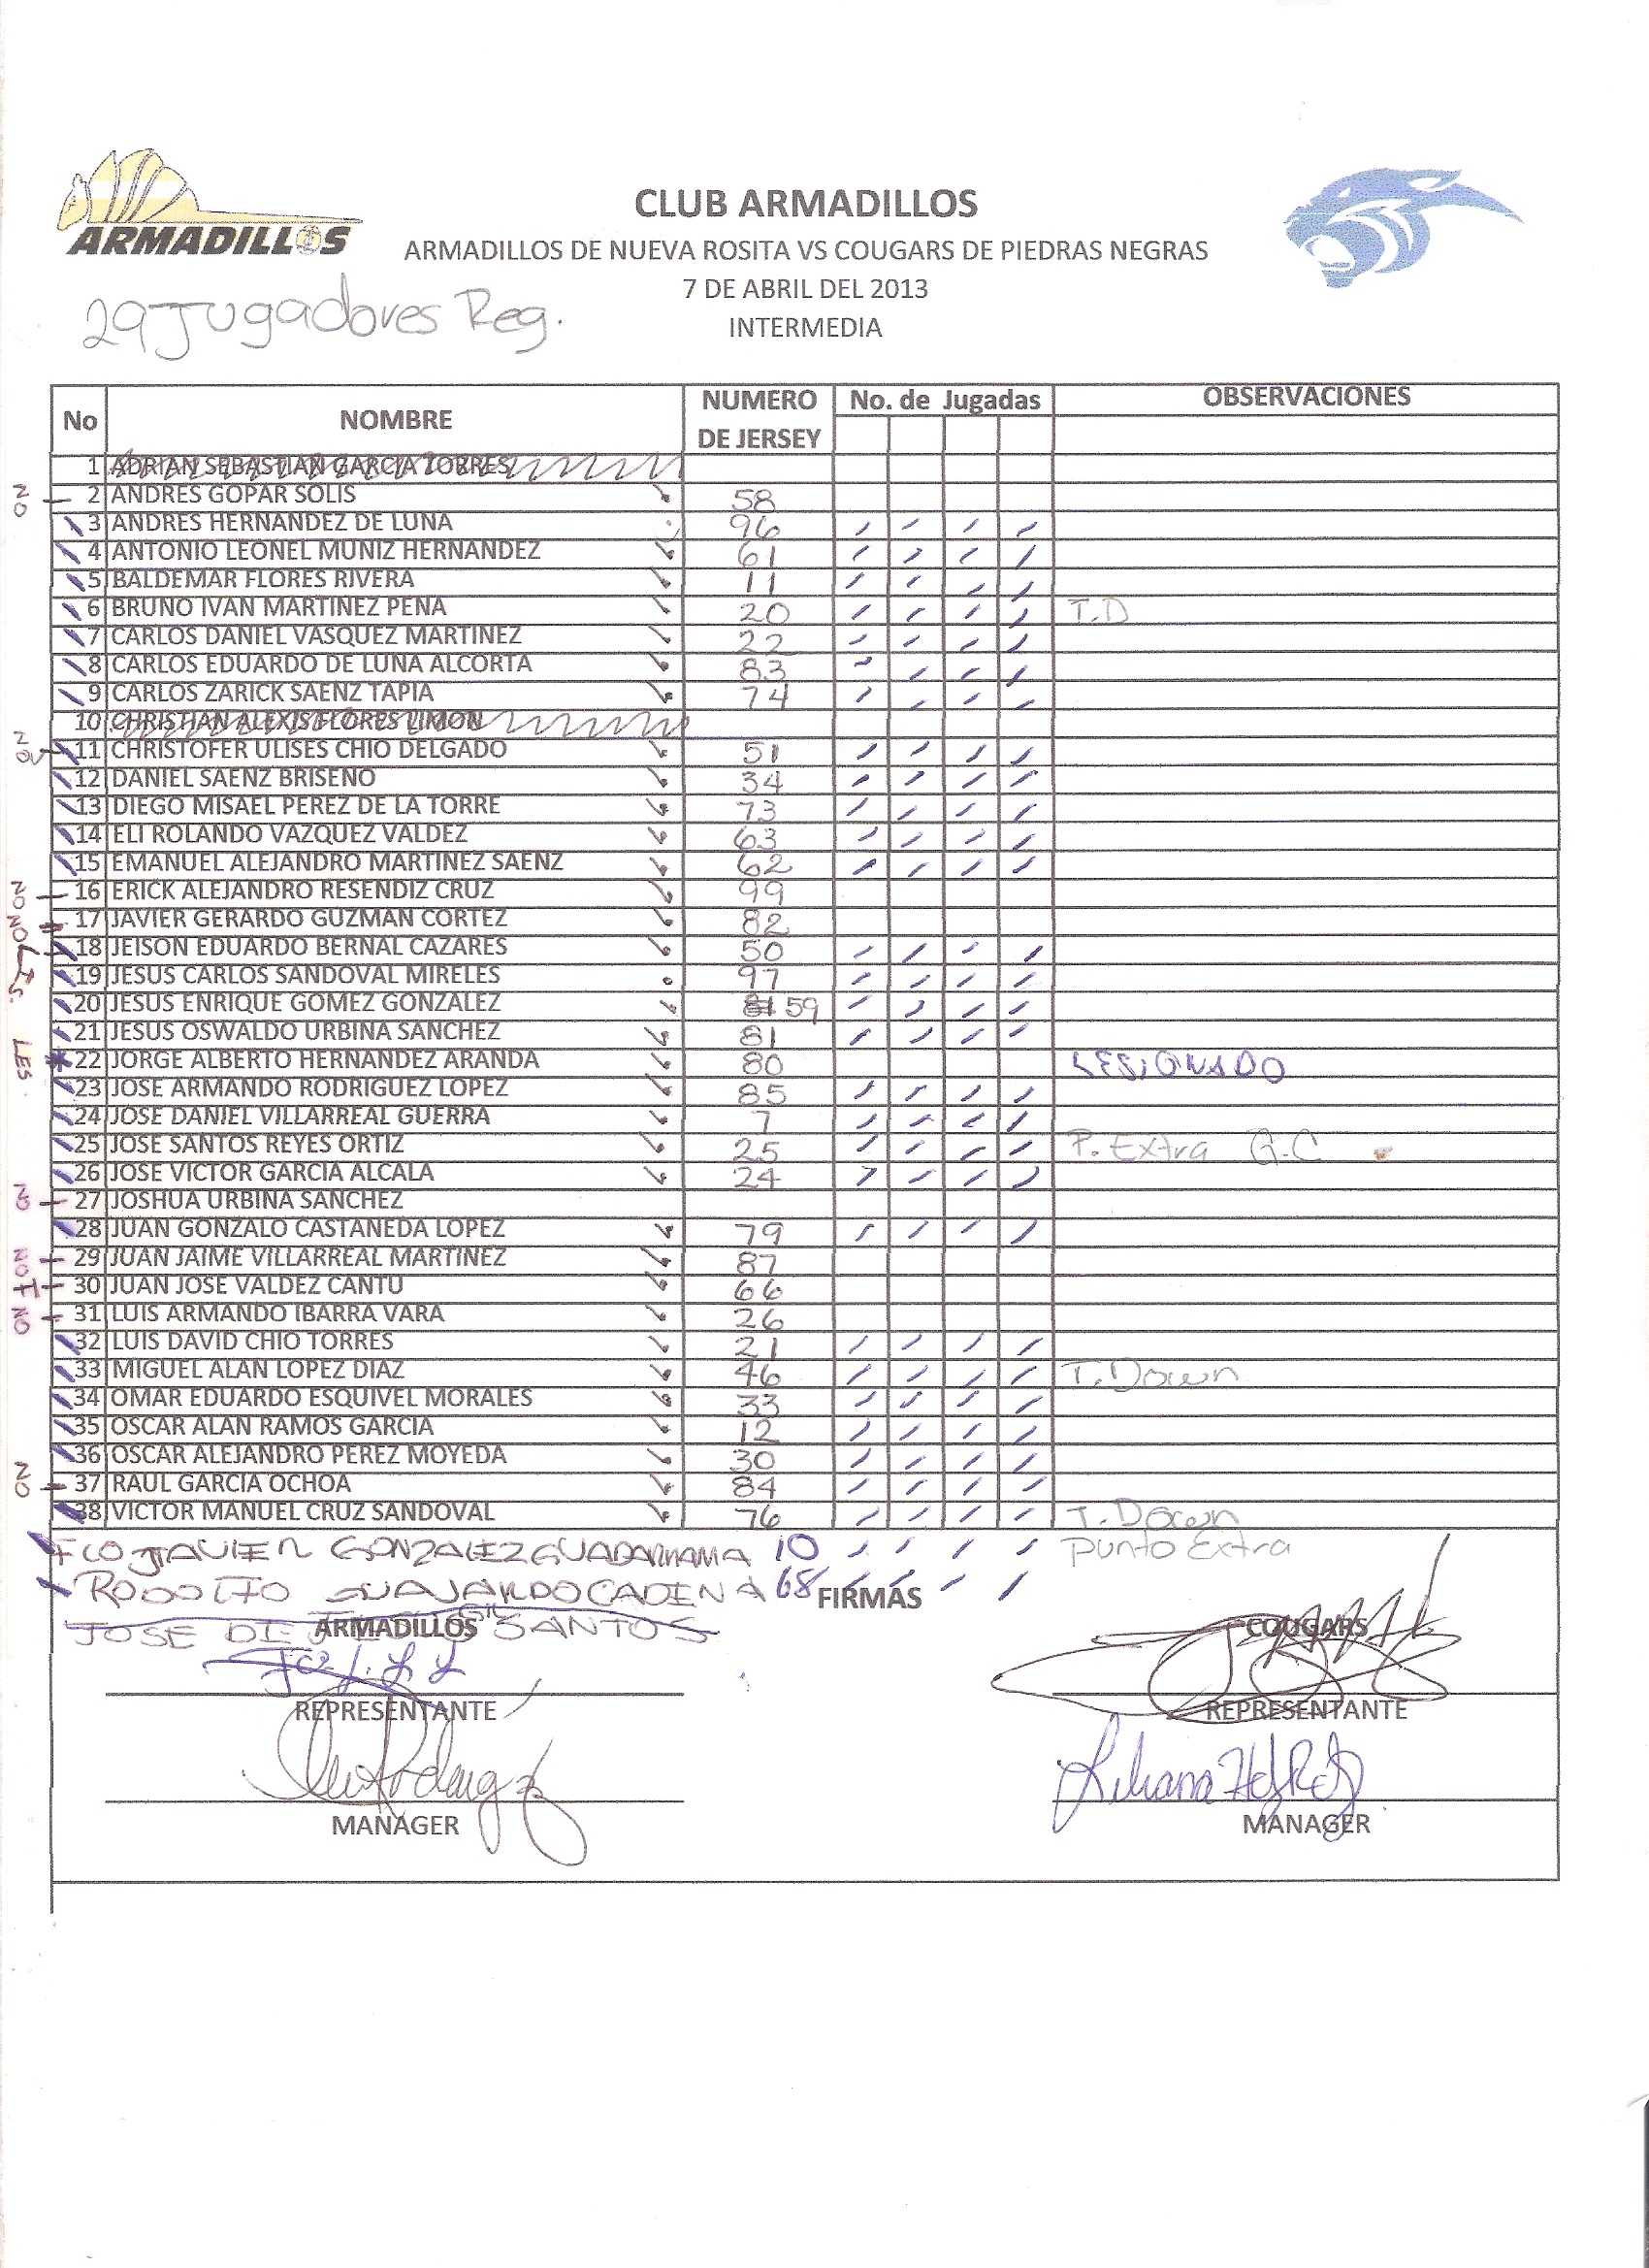 ARMADILLOS
CLUB ARMADILLOS
ARMADILLOS DE NUEVA ROSITA VS COUGARS DE PIEDRAS NEGRAS
7 DE ABRIL DEL 2013
INTERMEDIA
29 Jugadores Reg.
No NOMBRE NUMERO DE JERSEY No. de Jugadas OBSERVACIONES
1 ADRIAN SEBASTIAN GARCIA TORRES
NO 2 ANDRES GOPAR SOLIS 58
3 ANDRES HERNANDEZ DE LUNA 96
4 ANTONIO LEONEL MUNIZ HERNANDEZ 61
5 BALDEMAR FLORES RIVERA 11
6 BRUNO IVAN MARTINEZ PENA 20 T.D
7 CARLOS DANIEL VASQUEZ MARTINEZ 22
8 CARLOS EDUARDO DE LUNA ALCORTA 83
9 CARLOS ZARICK SAENZ TAPIA 74
10 CHRISTIAN ALEXIS FLORES LIMON
NO 11 CHRISTOFER ULISES CHIO DELGADO 51
12 DANIEL SAENZ BRISENO 34
13 DIEGO MISAEL PEREZ DE LA TORRE 73
14 ELI ROLANDO VAZQUEZ VALDEZ 63
15 EMANUEL ALEJANDRO MARTINEZ SAENZ 62
NO 16 ERICK ALEJANDRO RESENDIZ CRUZ 99
NO 17 JAVIER GERARDO GUZMAN CORTEZ 82
18 JEISON EDUARDO BERNAL CAZARES 50
19 JESUS CARLOS SANDOVAL MIRELES 97
20 JESUS ENRIQUE GOMEZ GONZALEZ 81 59
21 JESUS OSWALDO URBINA SANCHEZ 81
LES 22 JORGE ALBERTO HERNANDEZ ARANDA 80 LESIONADO
23 JOSE ARMANDO RODRIGUEZ LOPEZ 85
24 JOSE DANIEL VILLARREAL GUERRA 7
25 JOSE SANTOS REYES ORTIZ 25 P. Extra G.C
26 JOSE VICTOR GARCIA ALCALA 24
NO 27 JOSHUA URBINA SANCHEZ
28 JUAN GONZALO CASTANEDA LOPEZ 79
NO 29 JUAN JAIME VILLARREAL MARTINEZ 87
30 JUAN JOSE VALDEZ CANTU 66
NO 31 LUIS ARMANDO IBARRA VARA 26
32 LUIS DAVID CHIO TORRES 21
33 MIGUEL ALAN LOPEZ DIAZ 46 T. Down
34 OMAR EDUARDO ESQUIVEL MORALES 33
35 OSCAR ALAN RAMOS GARCIA 12
36 OSCAR ALEJANDRO PEREZ MOYEDA 30
NO 37 RAUL GARCIA OCHOA 84
38 VICTOR MANUEL CRUZ SANDOVAL 76 T. Down
FCO JAVIER GONZALEZ GUADARRAMA 10 Punto Extra
RODOLFO GUAJARDO CADENA 68
FIRMAS
JOSE DE SANTOS
ARMADILLOS COUGARS
REPRESENTANTE REPRESENTANTE
Liliana
MANAGER MANAGER